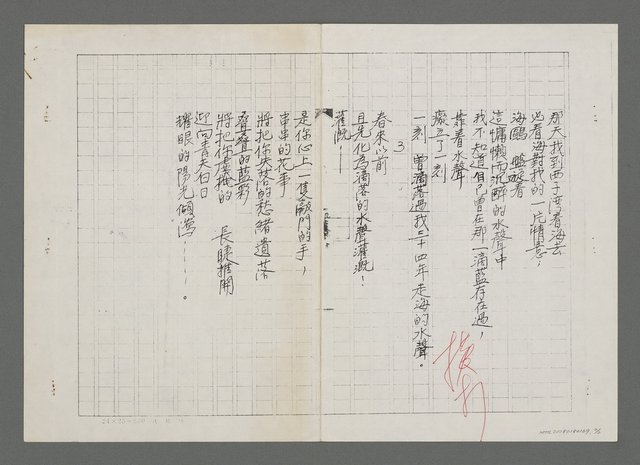 那天我到西子灣看海去
也看海對我的一片情意，
海鷗 盤旋着
這慵懶而沉醉的水聲中
我不知道自己曾在那一滴藍存在過，
靠着水聲
癡立了一刻
一刻 曾滴落過我三十四年走海的水聲。
3
春來以前
且先化為滴落的水聲灌溉！
灌溉！——
是你心上一隻敲門的手，
串串的花事
將把你失落的愁緒遺落
疊疊的藍彩
將把你虛掩的 長睫推開
迎向青天白日
耀眼的陽光傾瀉————。